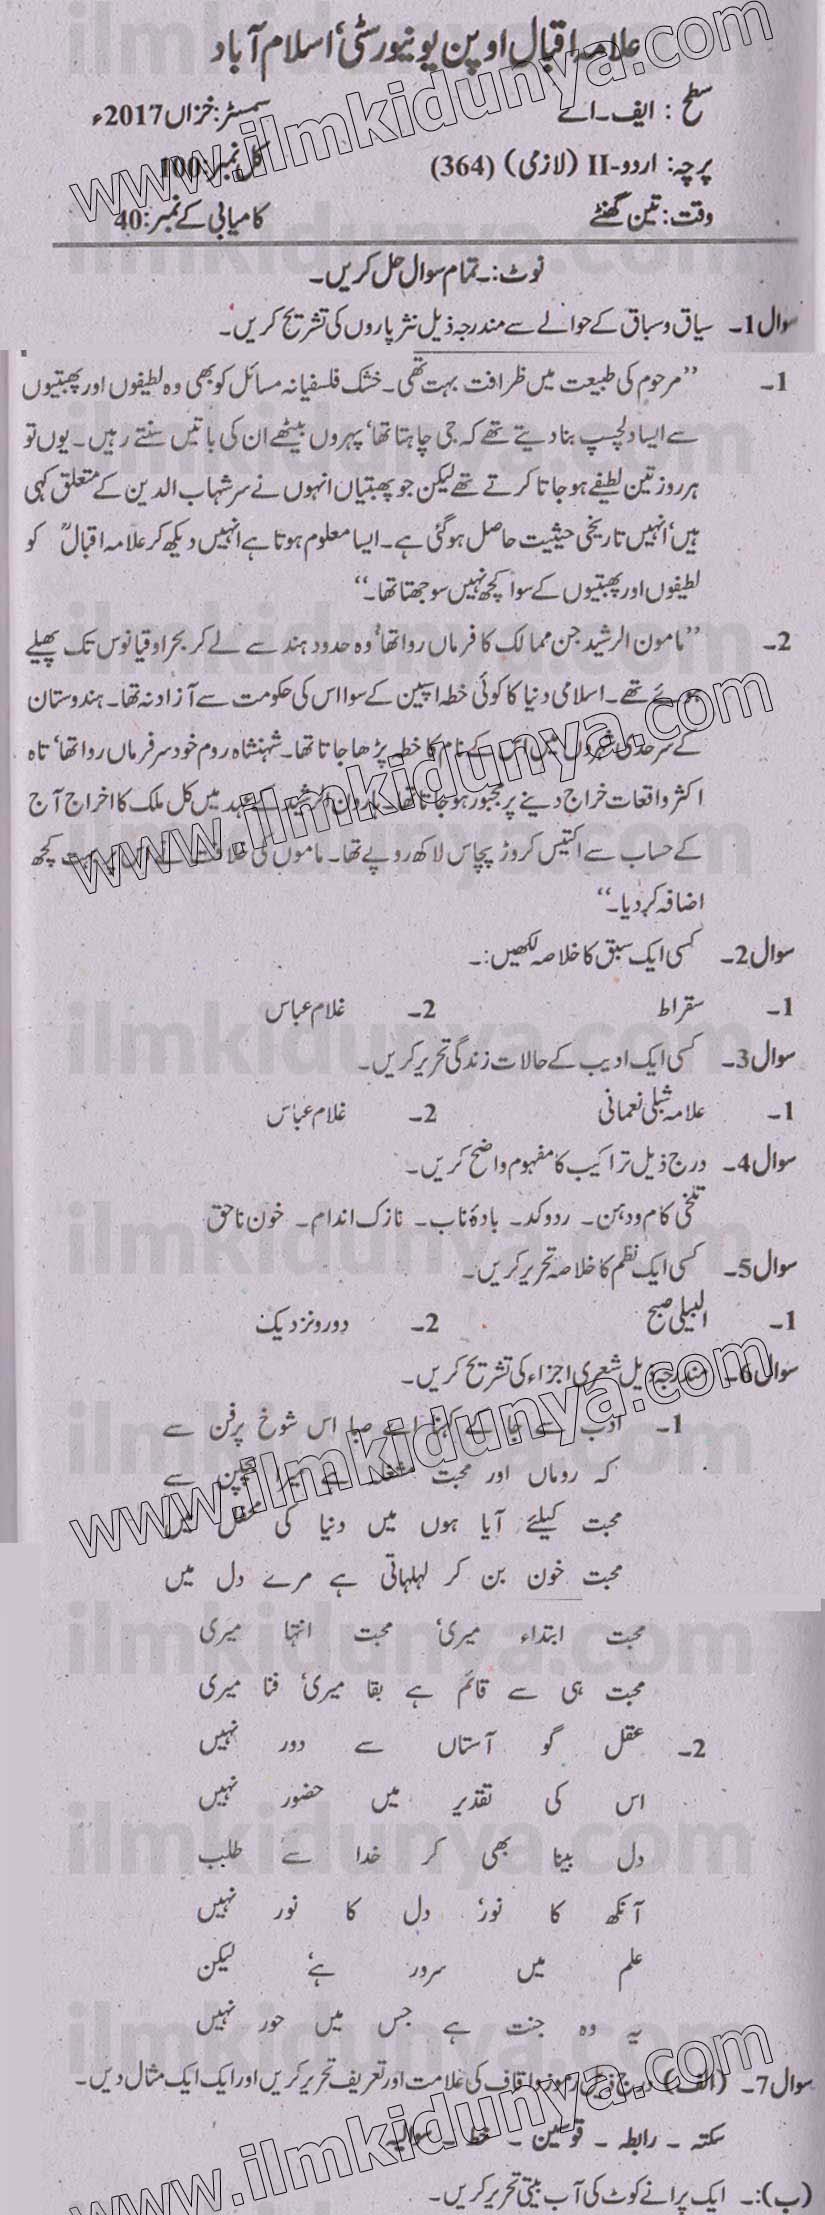 علامہ اقبال اوپن یونیورسٹی، اسلام آباد
سطح: ایف۔اے سمسٹر: خزاں 2017ء
پرچہ: اردو-II (لازمی) (364) کل نمبر: 100
وقت: تین گھنٹے کامیابی کے نمبر: 40
نوٹ:۔ تمام سوال حل کریں۔
سوال 1۔ سیاق و سباق کے حوالے سے مندرجہ ذیل نثر پاروں کی تشریح کریں۔
1۔ ”مرحوم کی طبیعت میں ظرافت بہت تھی۔ خشک فلسفیانہ مسائل کو بھی وہ لطیفوں اور پھبتیوں
سے ایسا دلچسپ بنا دیتے تھے کہ جی چاہتا تھا، پہروں بیٹھے ان کی باتیں سنتے رہیں۔ یوں تو
ہر روز تین لطیفے ہو جاتا کرتے تھے لیکن جو پھبتیاں انہوں نے سر شہاب الدین کے متعلق کہی
ہیں، انہیں تاریخی حیثیت حاصل ہو گئی ہے۔ ایسا معلوم ہوتا ہے انہیں دیکھ کر علامہ اقبالؒ کو
لطیفوں اور پھبتیوں کے سوا کچھ نہیں سوجھتا تھا۔“
2۔ ”مامون الرشید جن ممالک کا فرماں روا تھا، وہ حدود ہند سے لے کر بحر اوقیانوس تک پھیلے
ہوئے تھے۔ اسلامی دنیا کا کوئی خطہ اسپین کے سوا اس کی حکومت سے آزاد نہ تھا۔ ہندوستان
کے سرحدی شہروں میں اس کے نام کا خطبہ پڑھا جاتا تھا۔ شہنشاہ روم خود سر فرماں روا تھا، تاہ
اکثر واقعات خراج دینے پر مجبور ہو جاتا تھا۔ ہارون الرشید کے عہد میں کل ملک کا اخراج آج
کے حساب سے اکتیس کروڑ پچاس لاکھ روپے تھا۔ ماموں کی خلافت نے اس پر بہت کچھ
اضافہ کر دیا۔“
سوال 2۔ کسی ایک سبق کا خلاصہ لکھیں:۔
1۔ سقراط 2۔ غلام عباس
سوال 3۔ کسی ایک ادیب کے حالات زندگی تحریر کریں۔
1۔ علامہ شبلی نعمانی 2۔ غلام عباس
سوال 4۔ درج ذیل تراکیب کا مفہوم واضح کریں۔
تلخی کام و دہن۔ رد و کد۔ بادۂ ناب۔ نازک اندام۔ خون ناحق
سوال 5۔ کسی ایک نظم کا خلاصہ تحریر کریں۔
1۔ البیلی صبح 2۔ دور و نزدیک
سوال 6۔ مندرجہ ذیل شعری اجزاء کی تشریح کریں۔
1۔ ادب سے جا کے کہنا اے صبا اس شوخ پرفن سے
کہ روماں اور محبت مشغلہ ہے میرا بچپن سے
محبت کیلئے آیا ہوں میں دنیا کی محفل میں
محبت خون بن کر لہلہاتی ہے مرے دل میں
محبت ابتداء میری، محبت انتہا میری
محبت ہی سے قائم ہے بقا میری، فنا میری
2۔ عقل گو آستاں سے دور نہیں
اس کی تقدیر میں حضور نہیں
دل بینا بھی کر خدا سے طلب
آنکھ کا نور، دل کا نور نہیں
علم میں سرور ہے، لیکن
یہ وہ جنت ہے جس میں حور نہیں
سوال 7۔ (الف) درج ذیل رموز اوقاف کی علامت اور تعریف تحریر کریں اور ایک ایک مثال دیں۔
سکتہ ۔ رابطہ ۔ قوسین ۔ خط ۔ سوالیہ
(ب):۔ ایک پرانے کوٹ کی آب بیتی تحریر کریں۔
www.ilmkidunya.com
www.ilmkidunya.com
www.ilmkidunya.com
www.ilmkidunya.com